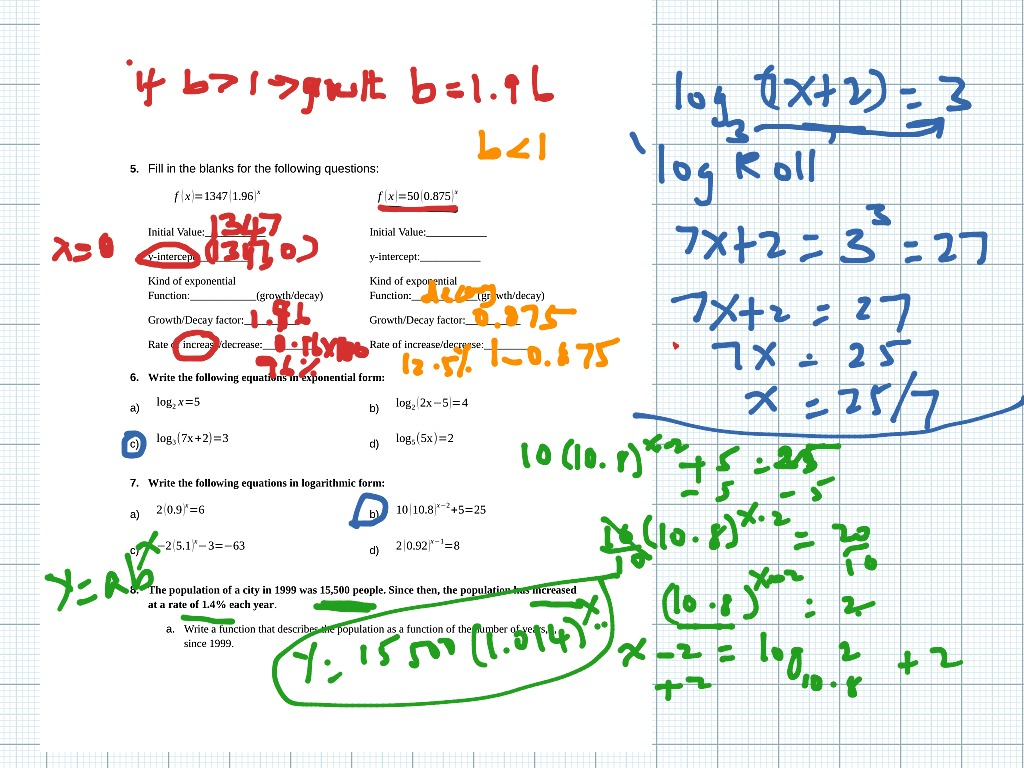 if b>1→growth b=1.96
b<1
5. Fill in the blanks for the following questions:
f(x)=1347(1.96)^x f(x)=50(0.875)^x
Initial Value:____ 1347 Initial Value:____
x=0 y-intercept y-intercept:____
Kind of exponential Kind of exponential
Function:____(growth/decay) Function:____ decay (growth/decay)
Growth/Decay factor:____ 1.96 Growth/Decay factor:____ 0.875
Rate of increase/decrease:____ 96% Rate of increase/decrease:____ 12.5% 1-0.875
6. Write the following equations in exponential form:
a) log₂ x=5 b) log₂(2x−5)=4
c) log₃(7x+2)=3 d) log₅(5x)=2
7. Write the following equations in logarithmic form:
a) 2(0.9)^x=6 b) 10(10.8)^(x−2)+5=25
c) −2(5.1)^x−3=−63 d) 2(0.92)^(x−1)=8
y=ab^x
8. The population of a city in 1999 was 15,500 people. Since then, the population has increased
at a rate of 1.4% each year.
a. Write a function that describes the population as a function of the number of years,
since 1999.
y=15500(1.014)^x
log₃(7x+2)=3
log Roll
7x+2=3³=27
7x+2=27
7x=25
x=25/7
10(10.8)^(x-2)+5=25
-5 -5
10/10(10.8)^(x-2)=20/10
(10.8)^(x-2)=2
x-2=log₁₀.₈ 2 +2
+2